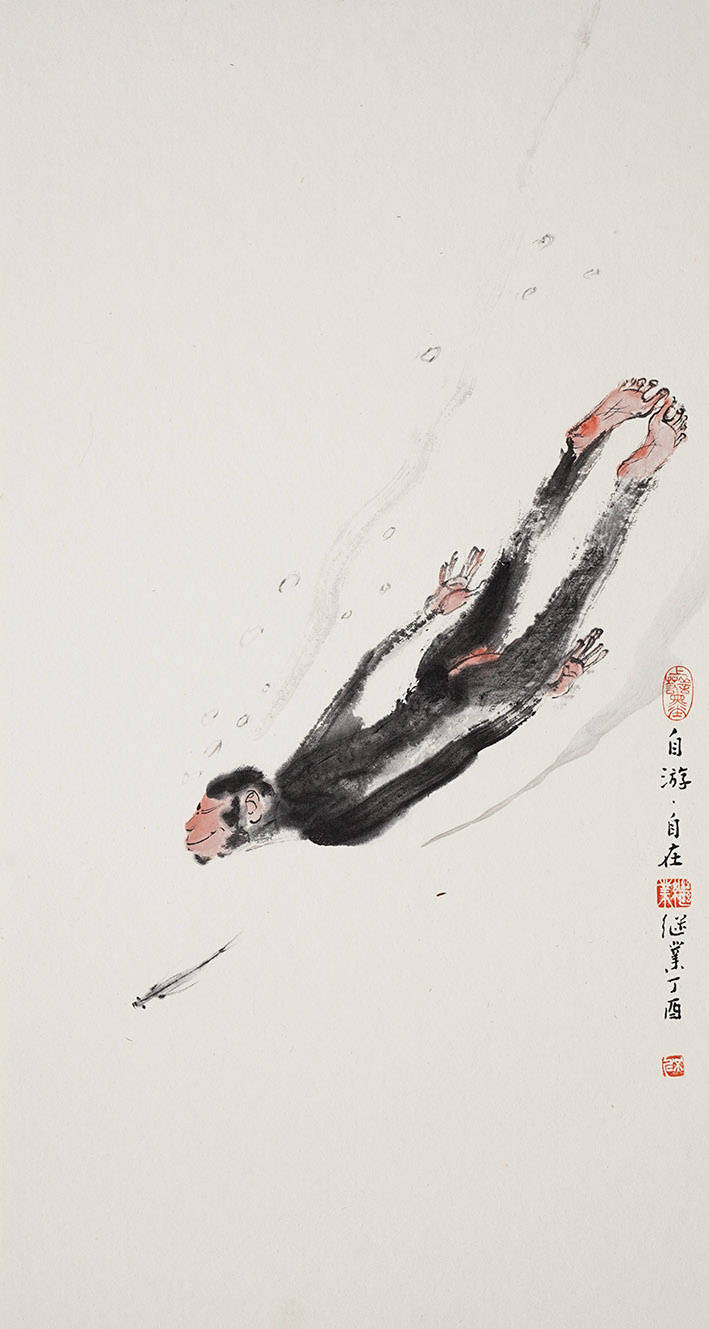 自游·自在
继業丁酉